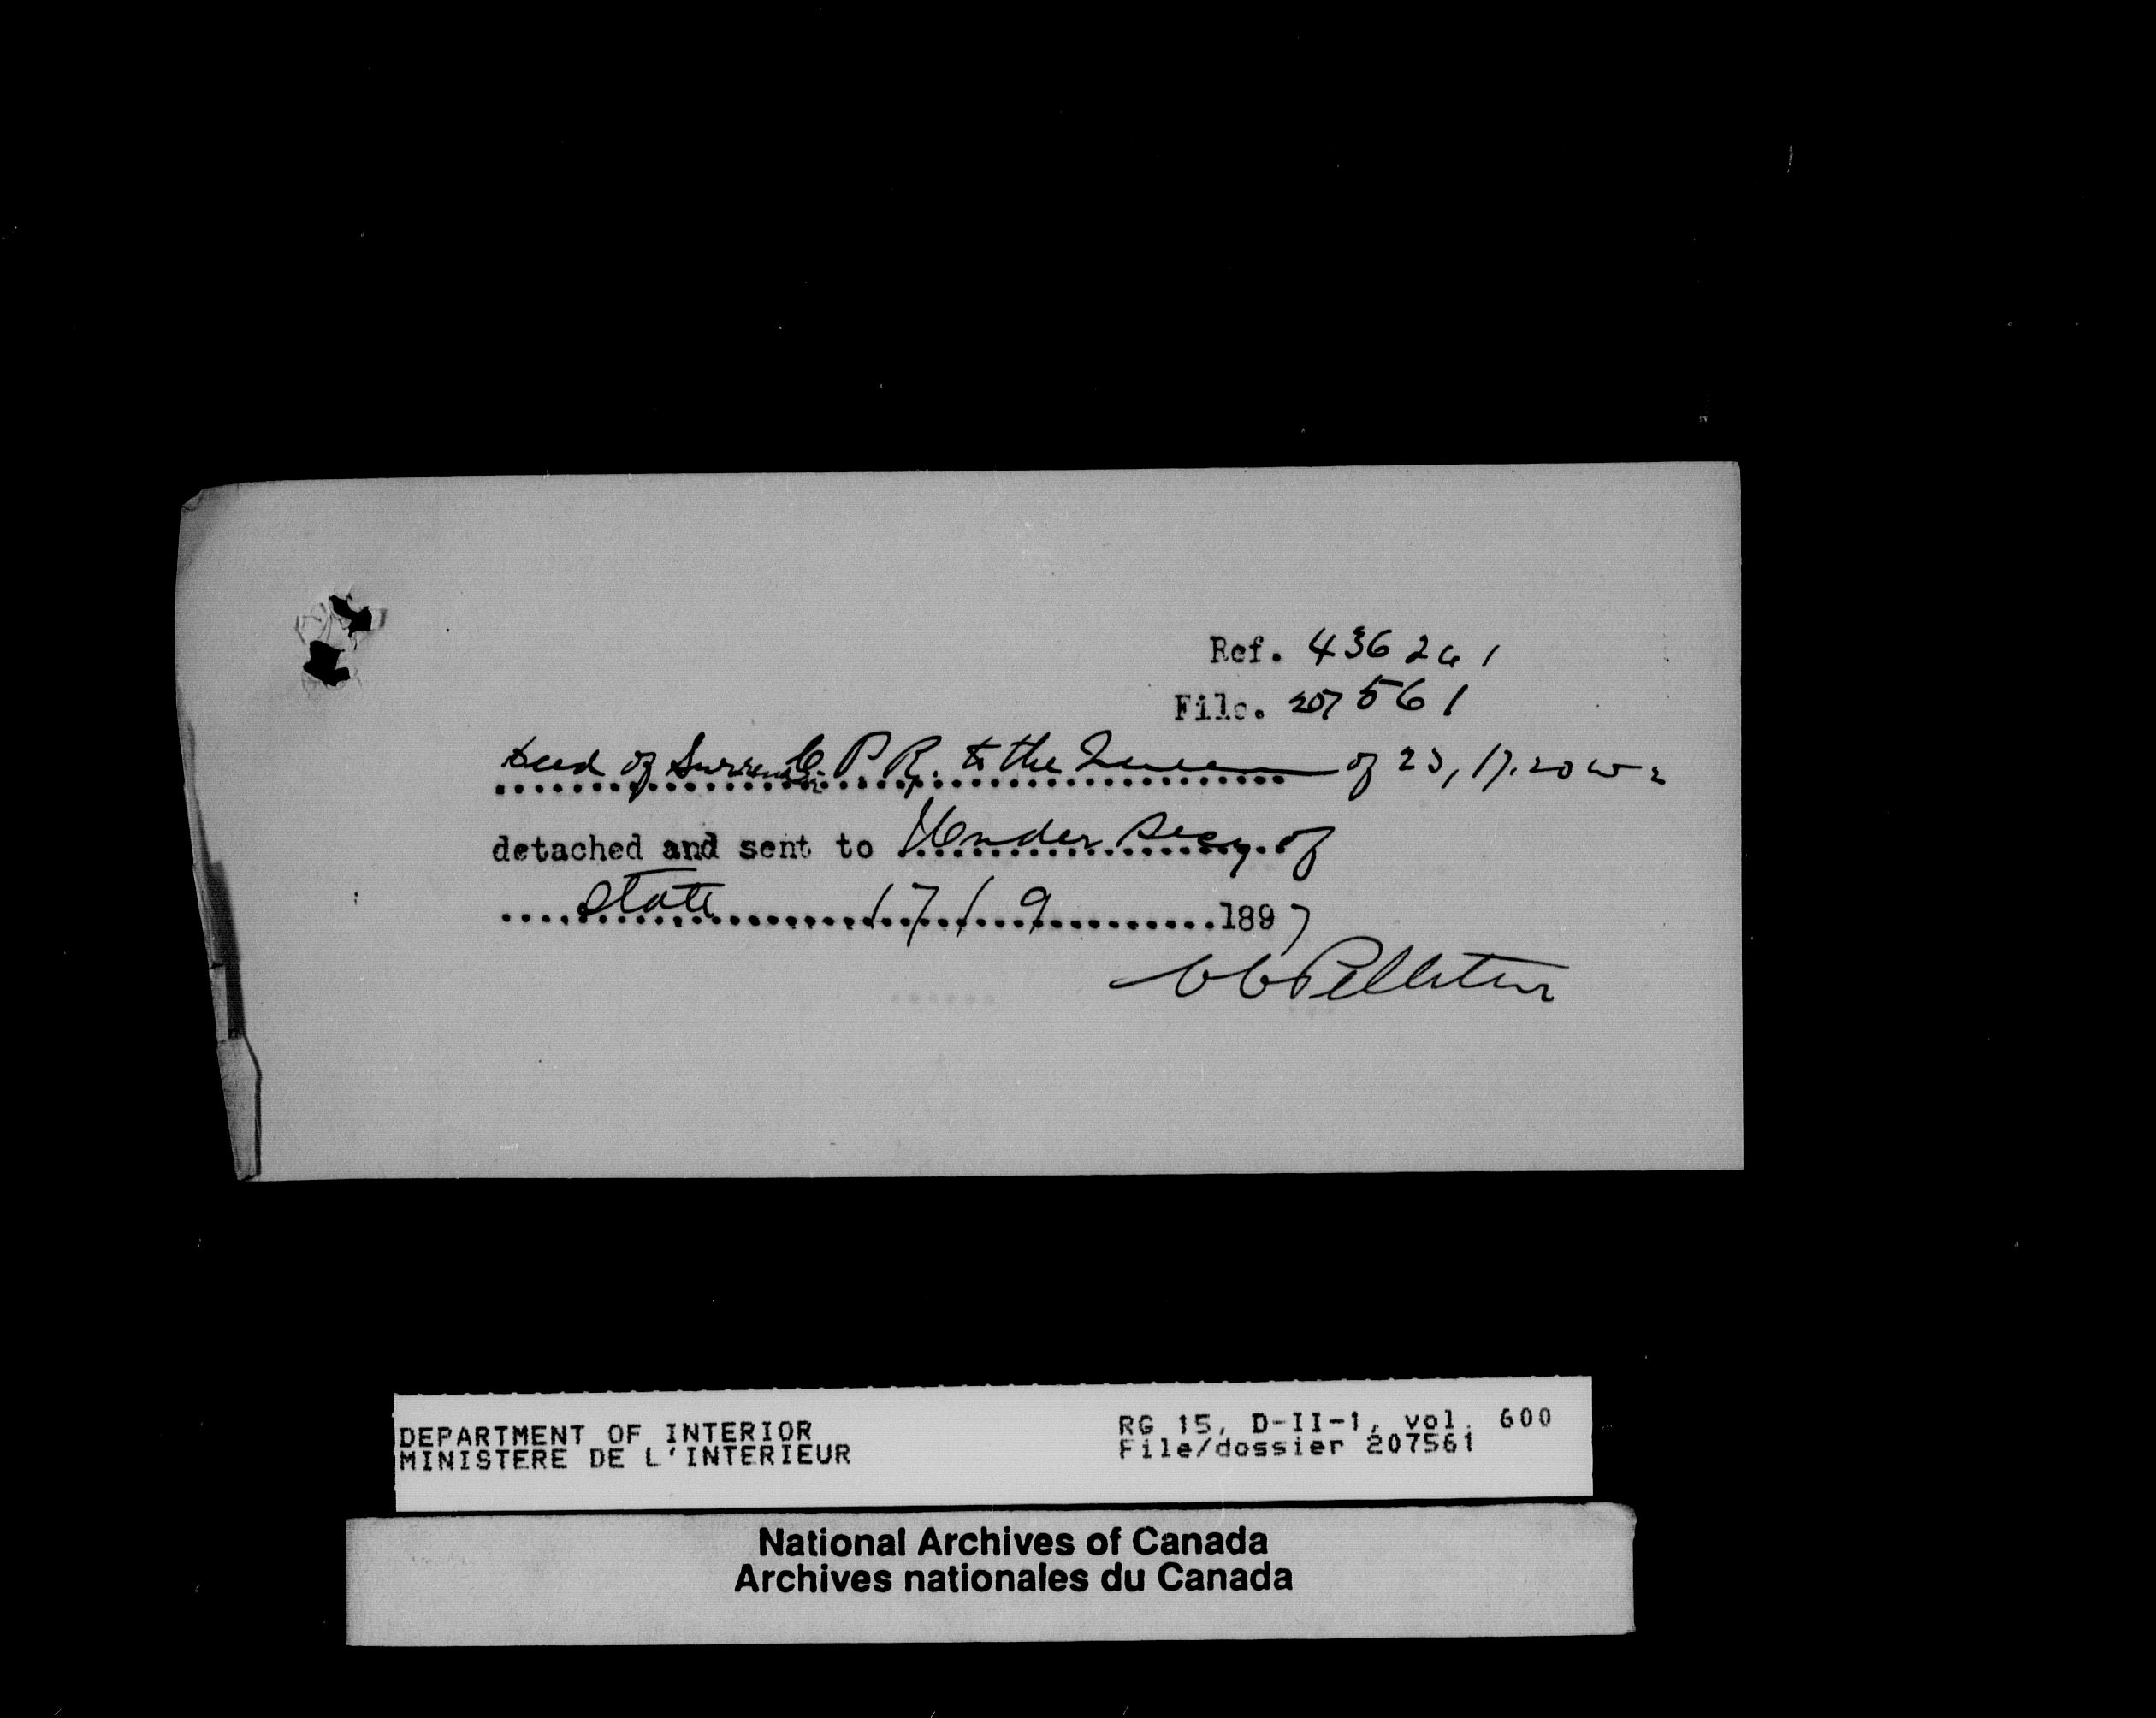 Ref. 436261
File. 207561
Deed of Surrender C.P.R. to the Queen of 23, 17. 20 W 2
detached and sent to Under Secy. of
State 17/9 1897
C C Pelletier
DEPARTMENT OF INTERIOR
MINISTERE DE L'INTERIEUR
RG 15, D-II-1, vol. 600
File/dossier 207561
National Archives of Canada
Archives nationales du Canada